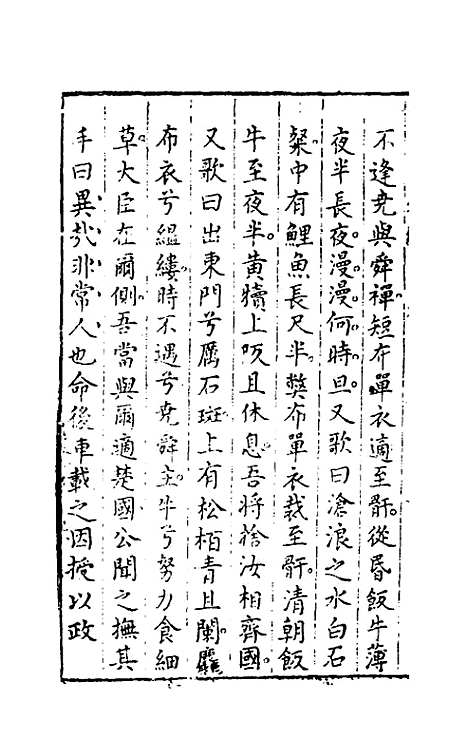 不逢尭與舜禪。短布單衣適至骭。從昏飯牛薄
夜半。長夜。漫。漫。何。時。旦。又歌曰滄浪之水白石
粲。中有鯉魚長尺半。獘布單衣裁至骭。清朝飯
牛至夜半。黄犢上阪且休息。吾將捨汝相齊國。
又歌曰出東門兮厲石斑。上有松栢青且闌。麤
布衣兮緼縷。時不遇兮尭舜主。牛兮努力食細
草。大臣在爾側。吾當與爾適楚國公聞之撫其
手曰異哉非常人也命後車載之因授以政